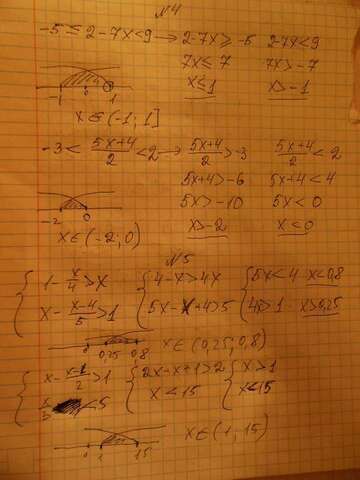 №4
-5 ≤ 2-7x<9 → 2-7x ≥ -5   2-7x<9
7x ≤ 7   7x>-7
x ≤ 1   x>-1
-1   0   1
x ∈ (-1; 1]
-3 < (5x+4)/2 < 2 → (5x+4)/2 > -3   (5x+4)/2 < 2
5x+4>-6   5x+4<4
5x>-10   5x<0
x>-2   x<0
-2   0
x ∈ (-2; 0)
№5
{ 1 - x/4 > x   { 4-x>4x   { 5x<4   x<0,8
{ x - (x-4)/5 > 1   { 5x-x+4>5   { 4x>1   x>0,25
0   0,25   0,8   x ∈ (0,25; 0,8)
{ x - (x-1)/2 > 1   { 2x-x+1>2   { x>1
{ x/3 < 5   { x<15   { x<15
0   1   15   x ∈ (1, 15)